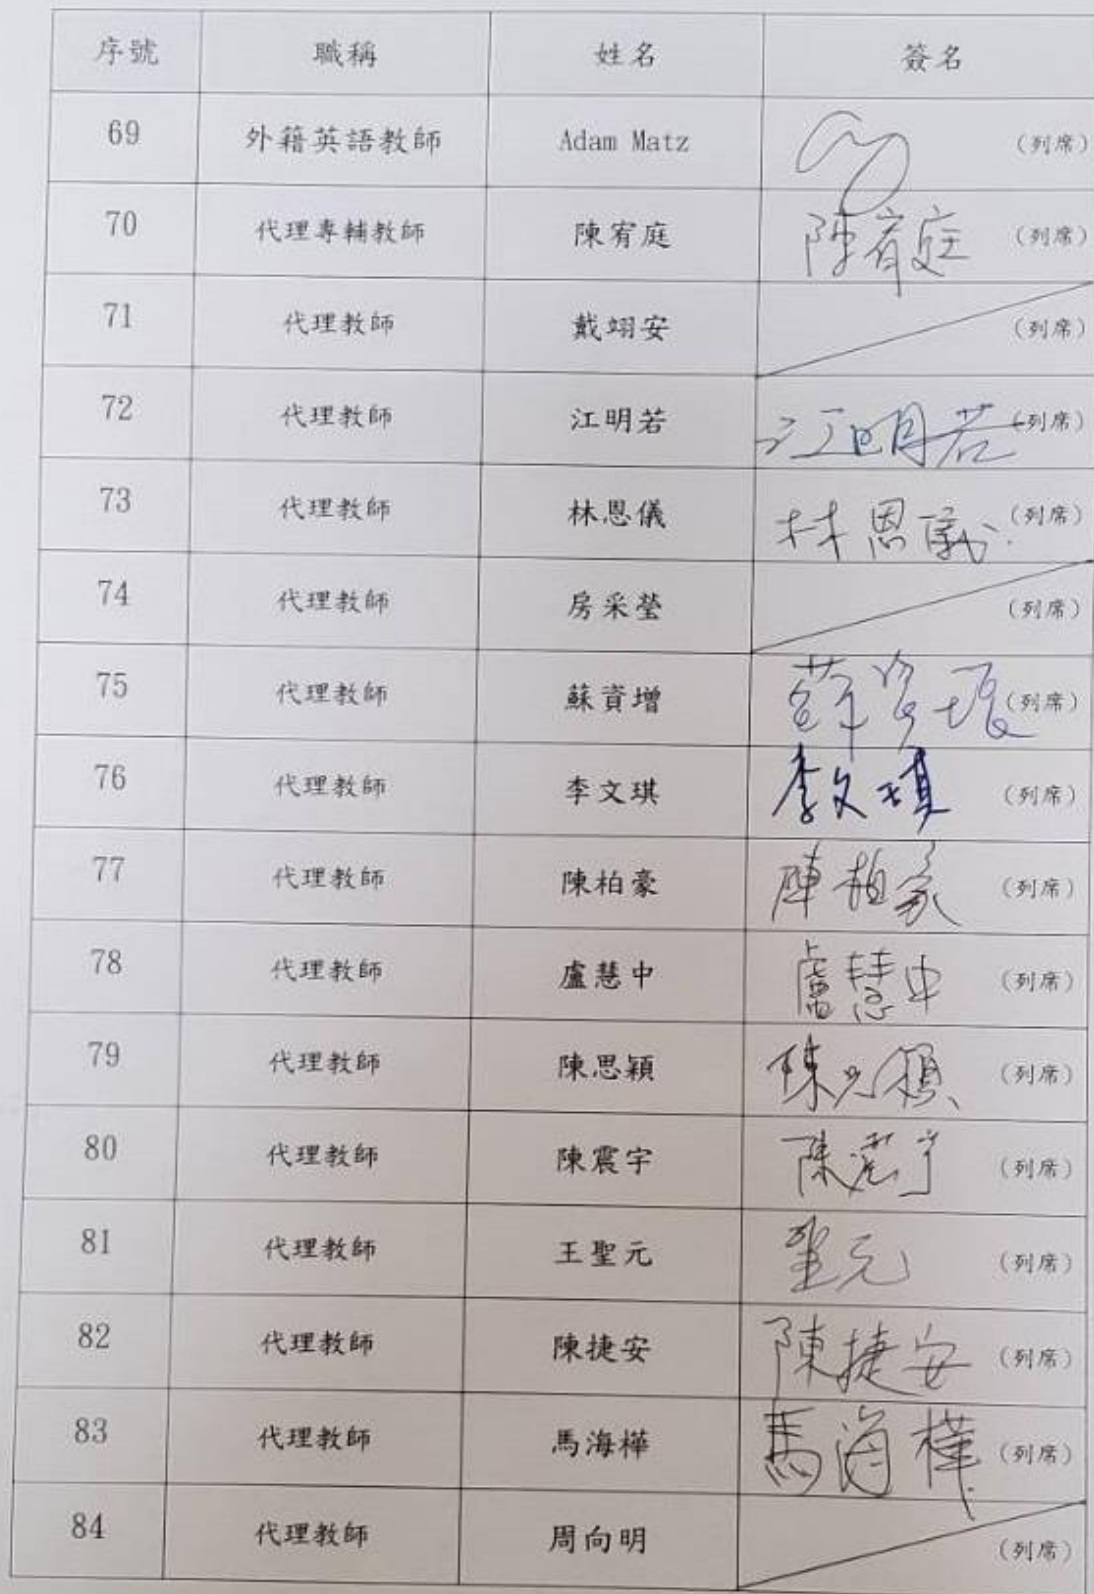 序號 職稱 姓名 簽名
69 外籍英語教師 Adam Matz (列席)
70 代理專輔教師 陳宥庭 陳宥庭 (列席)
71 代理教師 戴翊安 (列席)
72 代理教師 江明若 江明若 (列席)
73 代理教師 林恩儀 林恩儀 (列席)
74 代理教師 房采瑩 (列席)
75 代理教師 蘇資增 (列席)
76 代理教師 李文琪 李文琪 (列席)
77 代理教師 陳柏豪 陳柏豪 (列席)
78 代理教師 盧慧中 盧慧中 (列席)
79 代理教師 陳思穎 陳思穎 (列席)
80 代理教師 陳震宇 陳震宇 (列席)
81 代理教師 王聖元 聖元 (列席)
82 代理教師 陳捷安 陳捷安 (列席)
83 代理教師 馬海樺 馬海樺 (列席)
84 代理教師 周向明 (列席)